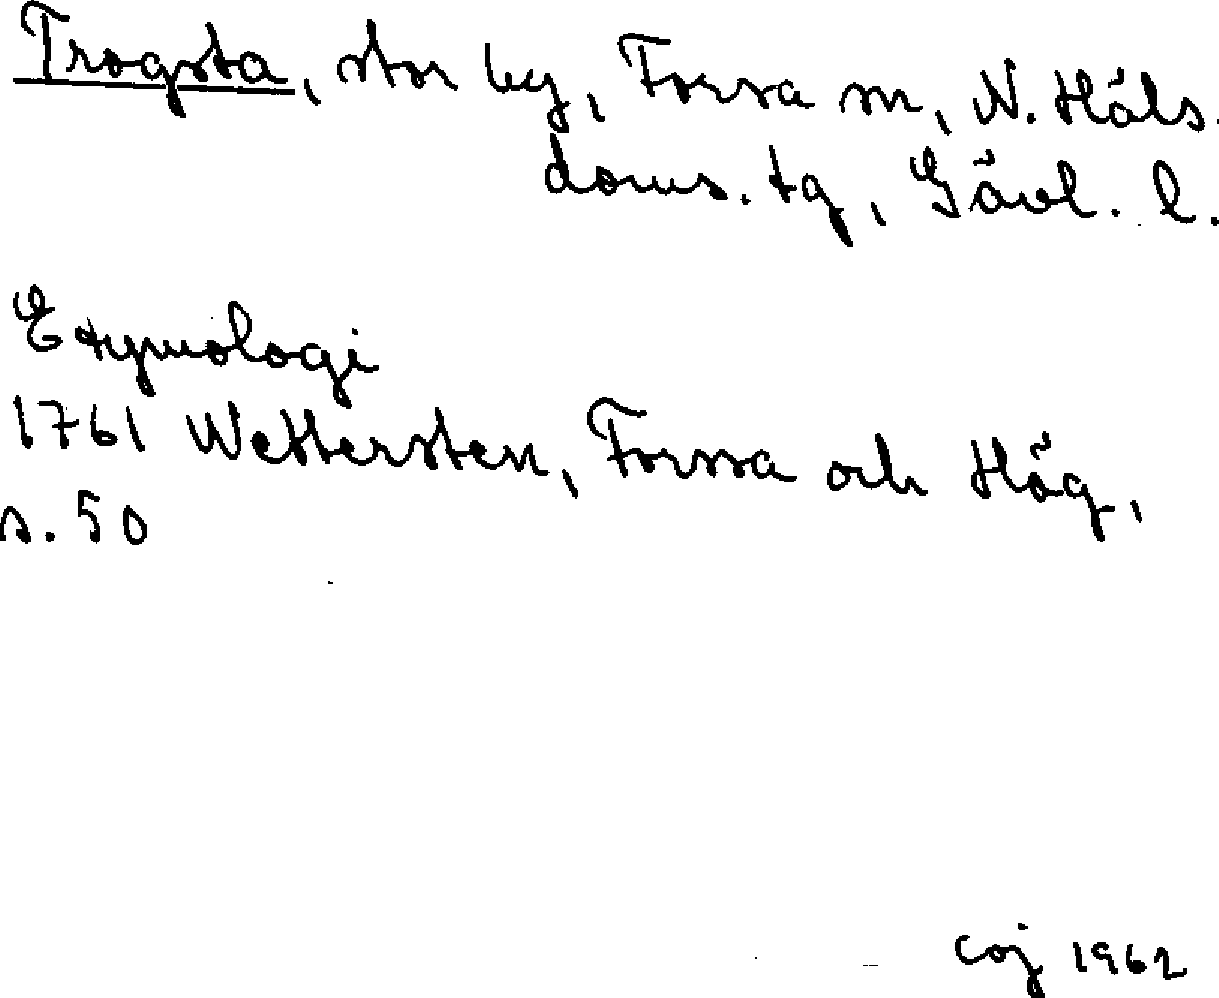 Trogsta, stor by, Forsa sn, N. Häls.
doms. tg, Gävl. l.
Etymologi
1761 Wettersten, Forssa och Hög,
s. 50
Coj 1962